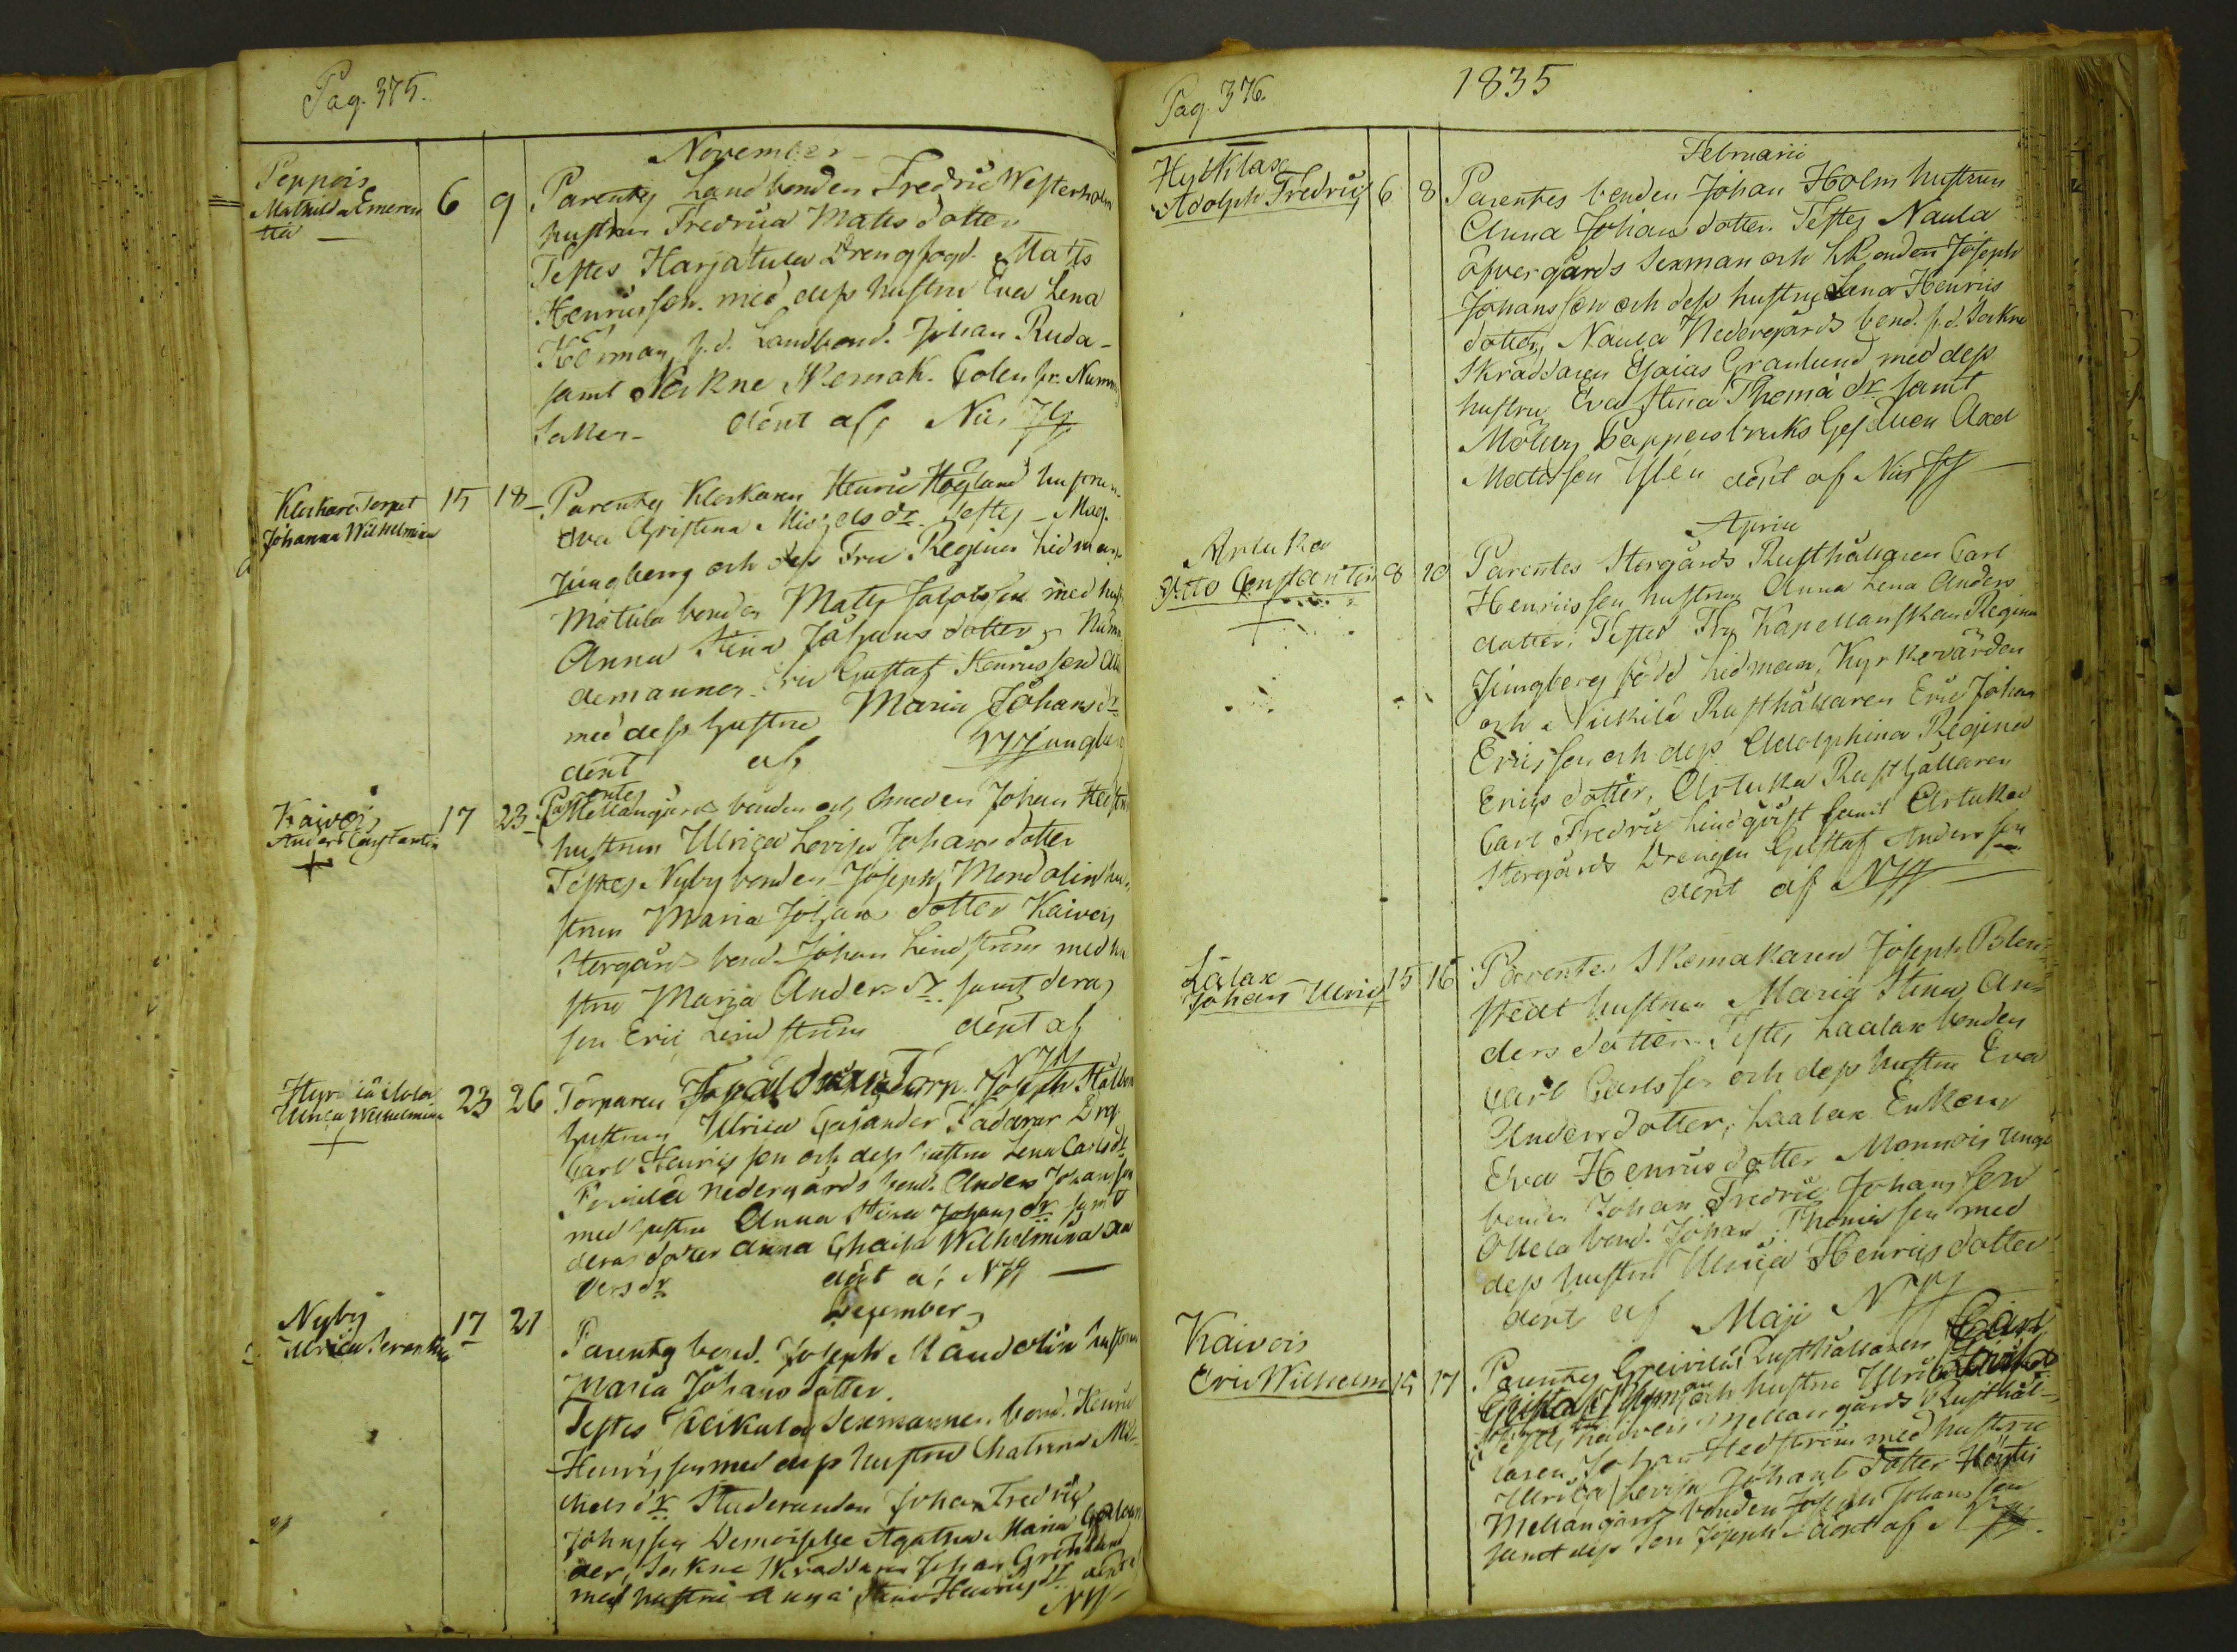 Pag. 375.
November
Peppois
Mathilda Emeren
tia
6 9
Parentes Landbonden Fredric Westerholm
hustrun Fredrica Matts dotter
Testes Harjatula Drengfogd. Matts
Henricsson. med dess hustru Eva Lena
f.d. Landbond. Johan Ruda-
samt Sockne
dönt af NJg
Klockare Torpet
Johanna Wilhelmina
15 18
Parentes Klockaren Henric Höglund hustrun
Eva Christina Michels dr. Testes Mag.
Ljungberg och dess Fru Regina Lidman
Motula bonden Matts Jacobsson med hust
Anna Stina Johans dotter
demannen Eric Gustaf Henricsson
med dess hustru Maria Johans dr
dönt af NJjungberg
Kaivois
Anders Constantin
17 23
Parentes
Mellangårds bonden och Smeden Johan Hedström
hustrun Ulrica Lovisa Johans dotter
Testes Nyby bonden Joseph Mandolin hu-
strun Maria Johans dotter Kaivois
Storgårds bond. Johan Lindström med hu
stru Maria Anders dr. samt deras
son Eric Lindström dönt af
NJg
Ulrica Wilhelmina
23 26
Torparen Joseph Stålbom
hustrun Ulrica Cajander Faddrar Drg.
Carl Henricsson och dess hustru Lena Carls dr
nedergårds bond. Anders Johansson
med hustru Anna Stina Johans dr samt
deras dotter Anna Chaisa Wilhelmina An
ders dr dönt af NJg
December
Nyby
Ulrica Serafina
17 21
Parentes bond. Joseph Mandolin hustrun
Maria Johans dotter.
Testes Keikula Sexmannen bond. Henric
Henricsson med dess hustru Chatrina Mi-
chels dr Studeranden Johan Fredric
Johnsson Demoiselle Agatha Maria
der, Sockne Skräddaren Johan Grönlund
med hustru Anna Stina Henrics dr dönt af
NJg
Pag. 376.
1835
Februarii
Hyttklax
Adolph Fredric
6 8
Parentes bonden Johan Holm hustrun
Anna Johans dotter. Testes Naula
öfvergårds Sexman och bonden Joseph
Johansson och dess hustru Lena Henrics
dotter, Naula Nedergårds bond. f.d. Sockne
Skräddaren Esaias Granlund med dess
hustru Eva Stina Thoma dr samt
Möllby Pappersbruks Gesällen Axel
Matisson Ylén dönt af NJg
April
Artukka
Otto Constantin
8 10
Parentes Storgårds Rusthållaren Carl
Henricsson hustrun Anna Lena Anders
dotter; Testes Fru Kapellanskan Regina
Ljungberg född Lidman, Kyrkovärden
och Nickilä Rusthållaren Eric Johan
Ericsson och dess Adolphina Regina
Erics dotter, Artukka Rusthållaren
Carl Fredric Lindqvist samt Artukka
Storgårds Drengen Gustaf Andersson
dönt af NJg
Lälax
Johan Ulric
15 16
Parentes Skomakaren Joseph Blom-
stedt hustrun Maria Stina An-
ders dotter. Testes Laalax bonden
Carl Carlsson och dess hustru Eva
Anders dotter, Laalax Enkan
Eva Henrics dotter Monnois unga
bonden Johan Fredric Johansson
Ollela bond. Johan Thomasson med
dess hustru Ulrica Henrics dotter
dönt af NJg
Maji
Kaivois
Eric Wilhelm
15 17
Parentes Greivilä Rusthållaren Carl
och hustru Ulrica Lovisa
Testes Kaivois Mellangårds Rusthål-
laren Johan Hedström med hustru
Ulrica Lovisa Johans dotter Höytis
Mellangårds bonden Joseph Johansson
samt dess son Joseph dönt af NJg.